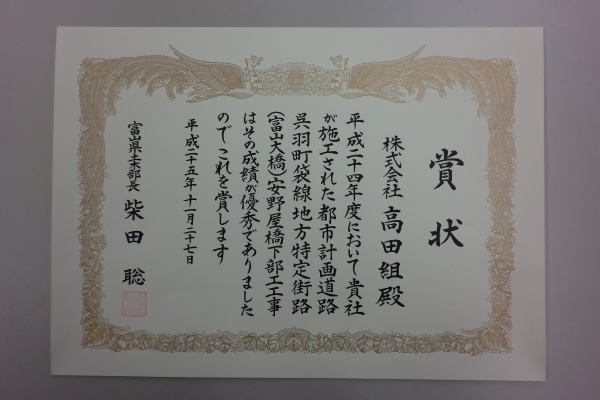 賞状
株式会社 高田組殿
平成二十四年度において貴社
が施工された都市計画道路
呉羽町袋線地方特定街路
(富山大橋)安野屋橋下部工工事
はその成績が優秀でありました
のでこれを賞します
平成二十五年十一月二十七日
富山県土木部長 柴田 聡